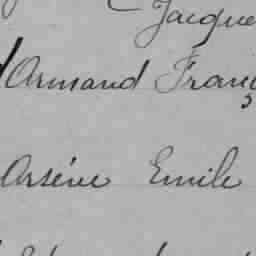 Jacque
Armand Franç
Arsène Emile